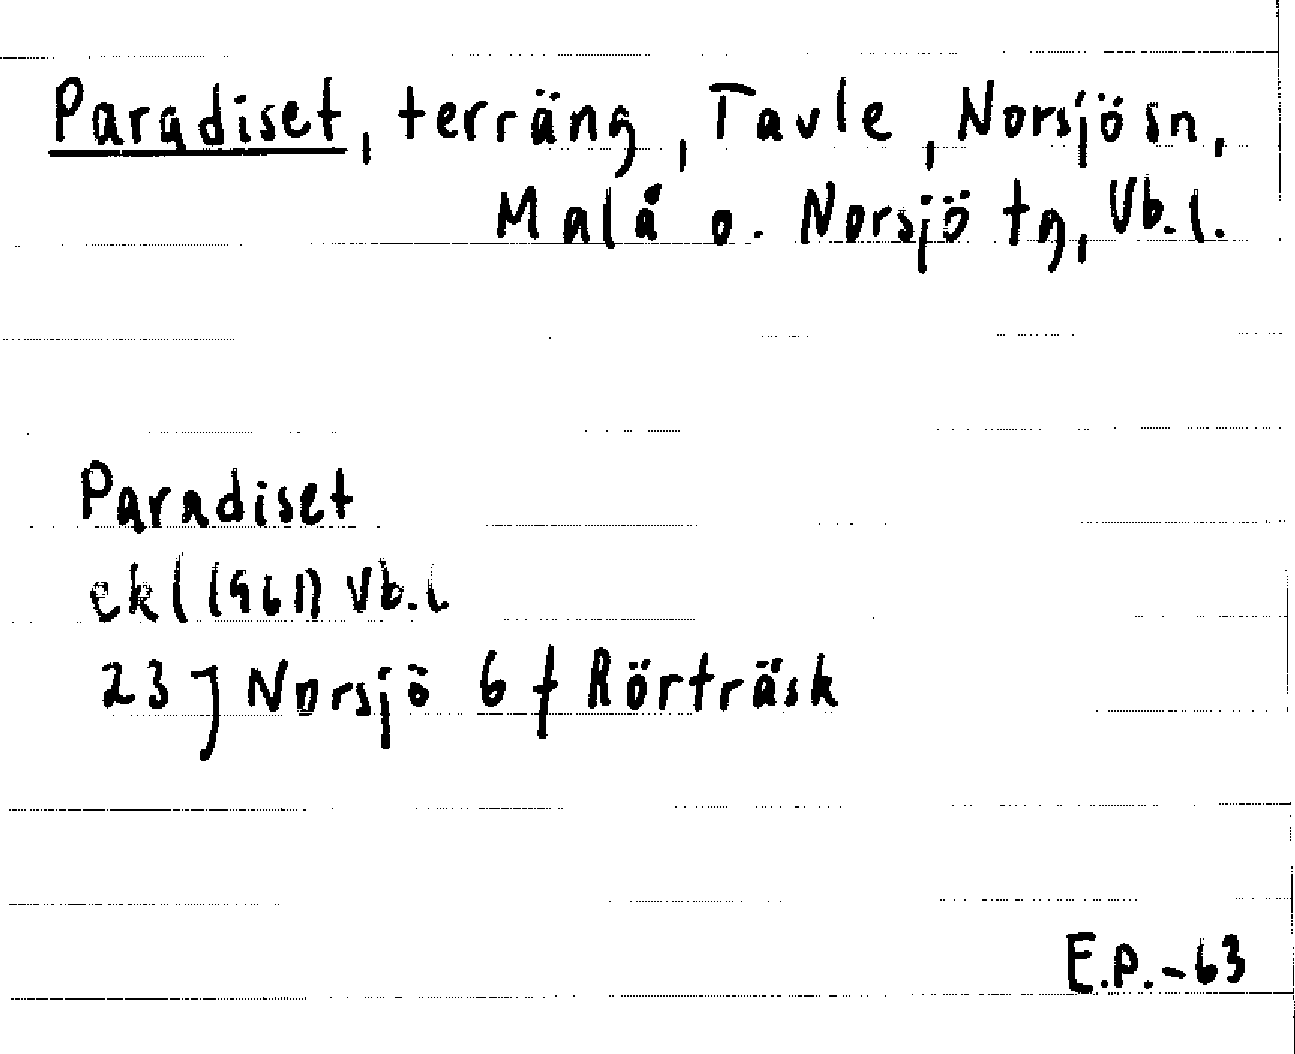 Paradiset, terräng, Tavle, Norsjö sn,
Malå o. Norsjö tg, Vb.l.
Paradiset
ekl (1961) Vb.l
23 J Norsjö 6 f Rörträsk
E.P.-63